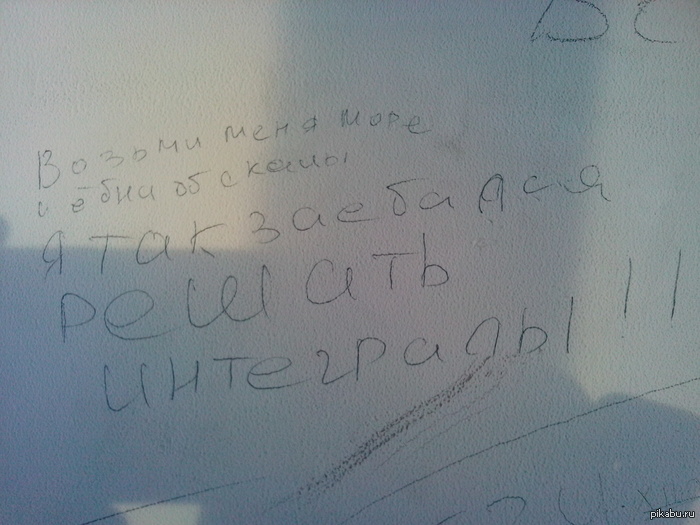 Возьми меня море
и ёбни об скалы
я так заебался
решать
интегралы!!
pikabu.ru